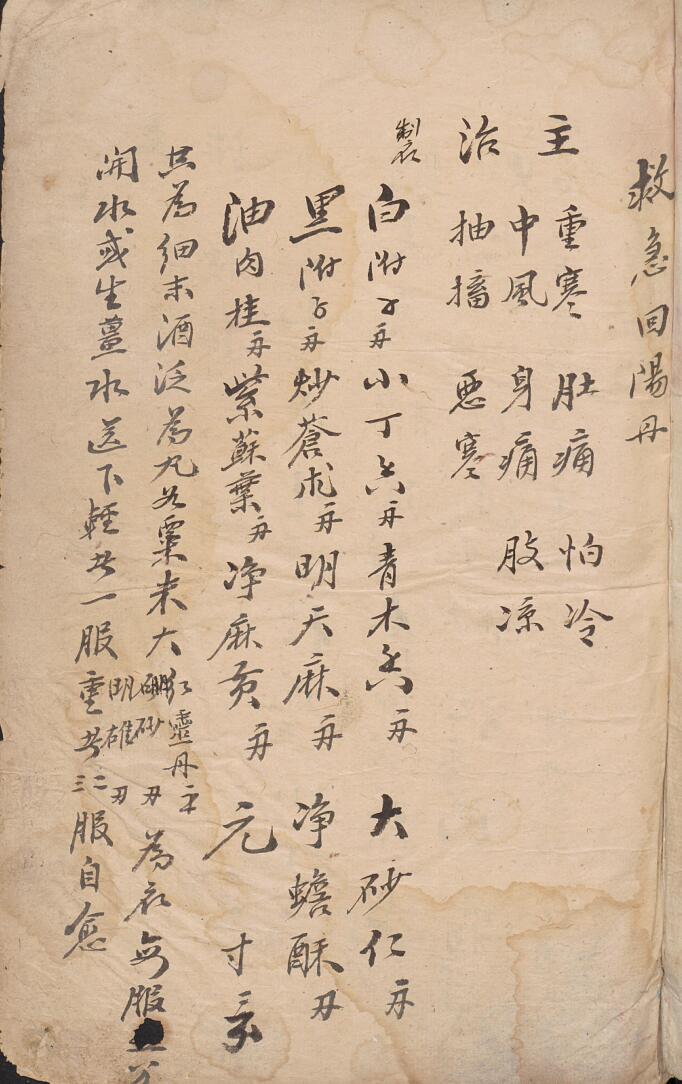 救急回陽丹
主 重寒 肚痛 怕冷
中風 身痛 股凉
治 抽搐 惡寒
製衣
白附子 小丁香 青木香 大砂仁
黑附子 炒蒼朮 明天麻 净蟾酥
油肉桂 紫蘇葉 净麻黄 元寸
共為細末酒泛為丸如粟米大 紅靈丹 硼砂 明雄 為衣每服
開水或生薑水送下輕者一服重者二三服自愈